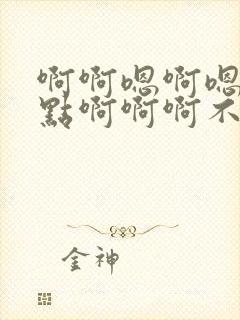 啊啊嗯啊嗯
點啊啊啊不
金神